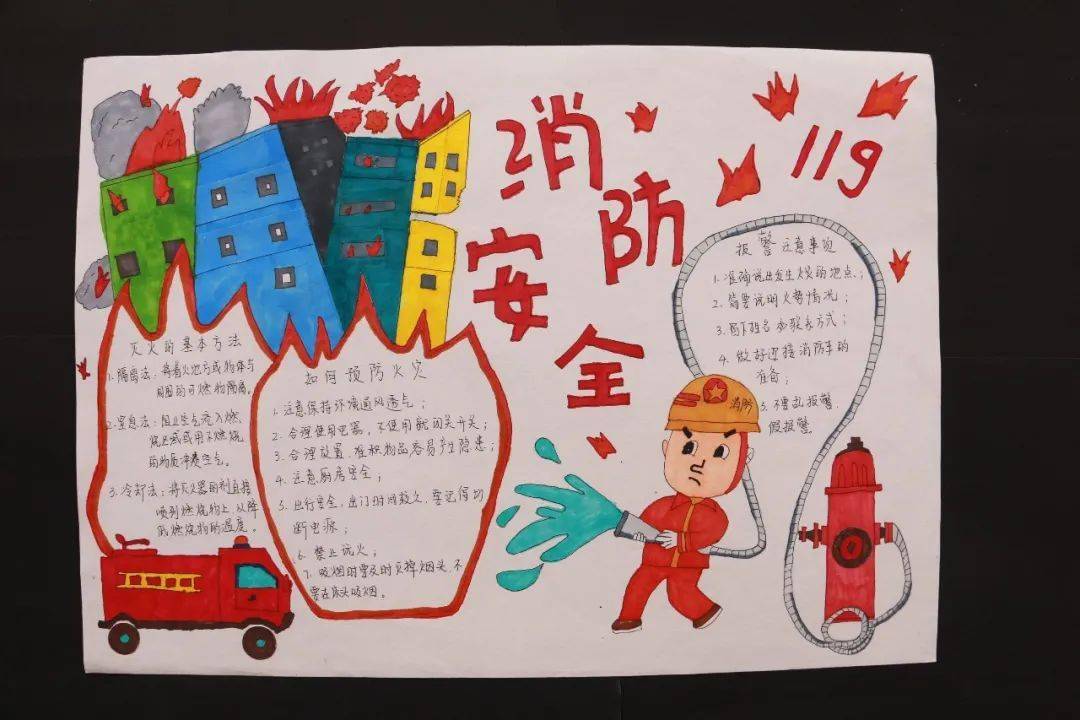 消防
安全
119
灭火的基本方法
1.隔离法:将着火地方或物体与
周围的可燃物隔离。
2.窒息法:阻止空气流入燃
烧区域或用不燃烧
的物质冲淡空气。
3.冷却法:将灭火器的剂直接
喷到燃烧物上,从降
低燃烧物的温度。
如何预防火灾
1.注意保持环境通风透气;
2.合理使用电器,不使用就闭关开关;
3.合理放置,堆积物品容易产生隐患;
4.注意厨房安全;
5.出行安全,出门时间较久,要记得切
断电源;
6.禁止玩火;
7.吸烟时要及时灭掉烟头,不
要在床头吸烟。
报警注意事项
1.准确说出发生火灾的地点;
2.简要说明火势情况;
3.留下姓名和联系方式;
4.做好迎接消防车的
准备;
5.不要乱报警,
假报警。
消防